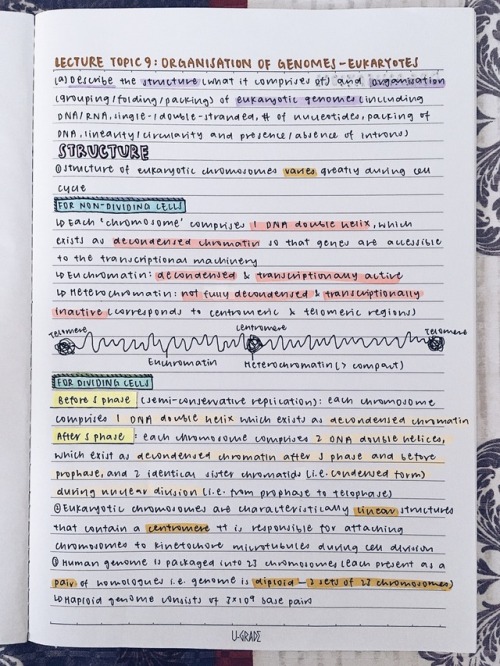 LECTURE TOPIC 9: ORGANISATION OF GENOMES - EUKARYOTES
(a) Describe the structure (what it comprises of) and organisation
(grouping/folding/packing) of eukaryotic genomes (including
DNA/RNA, single-/double-stranded, # of nucleotides, packing of
DNA, linearity/circularity and presence/absence of introns)
STRUCTURE
① structure of eukaryotic chromosomes varies greatly during cell
cycle
FOR NON-DIVIDING CELLS
↳ Each 'chromosome' comprises 1 DNA double helix, which
exists as decondensed chromatin so that genes are accessible
to the transcriptional machinery
↳ Euchromatin: decondensed & transcriptionally active
↳ Heterochromatin: not fully decondensed & transcriptionally
inactive (corresponds to centromeric & telomeric regions)
Telomere centromere Telomere
Euchromatin Heterochromatin (> compact)
FOR DIVIDING CELLS
Before S phase (semi-conservative replication): each chromosome
comprises 1 DNA double helix which exists as decondensed chromatin
After S phase: each chromosome comprises 2 DNA double helices,
which exist as decondensed chromatin after S phase and before
prophase, and 2 identical sister chromatids (i.e. condensed form)
during nuclear division (i.e. from prophase to telophase)
② Eukaryotic chromosomes are characteristically linear structures
that contain a centromere tt is responsible for attaching
chromosomes to kinetochore microtubules during cell division
③ Human genome is packaged into 23 chromosomes (each present as a
pair of homologues i.e. genome is diploid - 2 sets of 23 chromosomes)
↳ Haploid genome consists of 3×10⁹ base pairs
U-GRADE